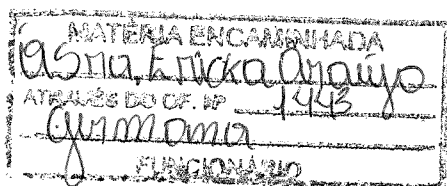 MATÉRIA ENCAMINHADA
à Sra. Ericka Araújo
ATRAVÉS DO OF. Nº 1443
Germana
FUNCIONÁRIO